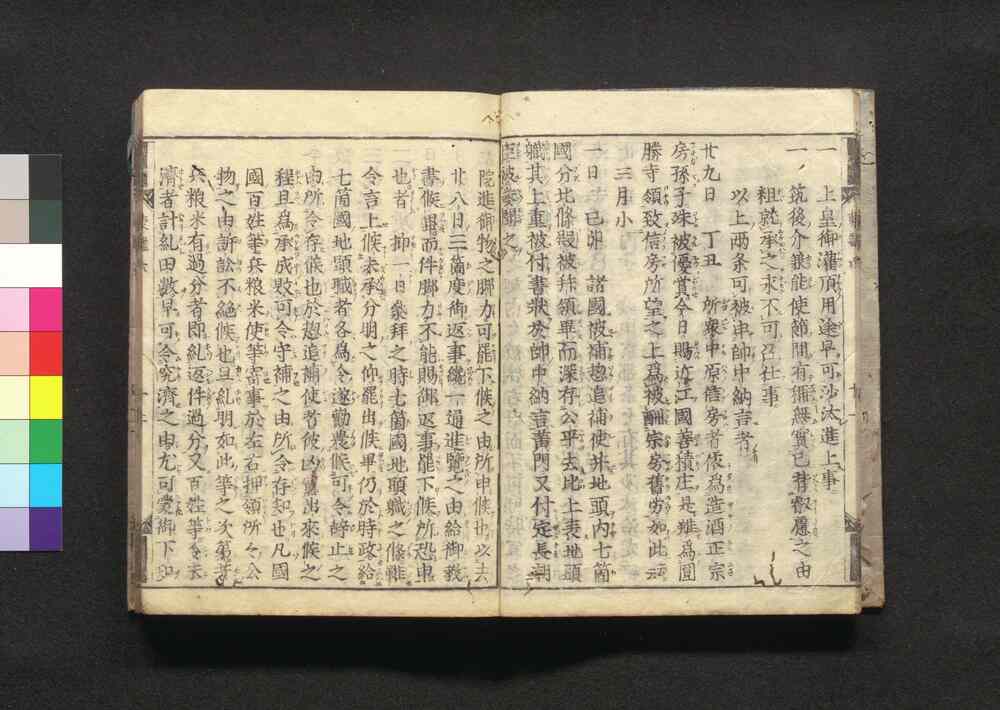 一 上皇御灌頂用途早可沙汰進上事
一 筑後介兼能使節間有備無實已背叡慮之由
粗就承之永不可召仕事
以上両条可被申帥中納言者
廿九日 丁丑 所衆中原信房者依爲造酒正宗
房孫子殊被優賞今日賜近江國善積庄是雖爲圓
勝寺領致信房所望之上爲被酬宗房舊労如此云
三月小
一日 己卯 諸國被補惣追補使并地頭内七箇
國分北條殿被拜領畢而深存公平去比上表地頭
職其上重被付書状於帥中納言黄門又付定長朝
臣被奏聞之
院進御物之脚力可罷下候之由所申候也以去
廿八日二箇度御返事纔一通進覽之由給御教
書候畢而件脚力不能賜御返事罷下候所恐申
也者 抑一日衆拜之時七箇國地頭職之條雖
令言上候未承分明之仰罷出候畢仍於時政給
七箇國地頭職者各爲令遂勸農候可令辞止之
由所令存候也於惣追補使者彼凶黨出來候之
程且爲承成敗可令守補之由所令存知也凡國
國百姓等兵粮米使等寄事於左右押領所々公
物之由訴訟不絶候也且糺明如此等之次第若
兵粮米有過分者即糺返件過分又百姓等令未
濟者計糺田數早可令究濟之由尤可蒙御下知